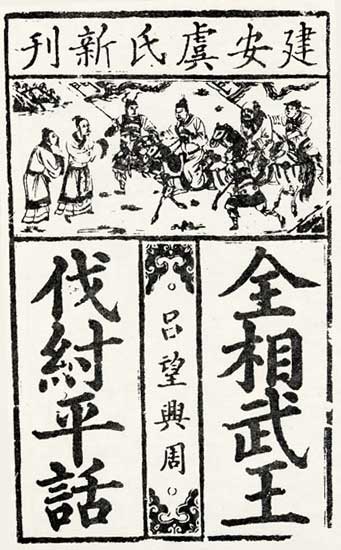 建安虞氏新刊
全相武王
呂望興周
伐紂平話